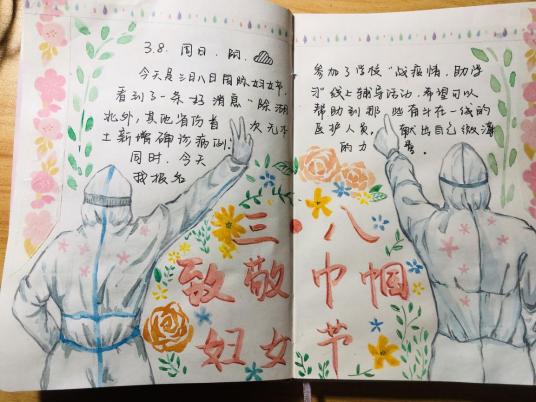 3.8. 周日. 阴.
今天是三月八日国际妇女节，
看到了一条好消息"除湖
北外，其他省份首次无本
土新增确诊病例。
同时，今天
我报名
参加了学校"战疫情，助学
习"线上辅导活动，希望可以
帮助到那些奋斗在一线的
医护人员，献出自己微薄
的力量。
三八
致敬巾帼
妇女节